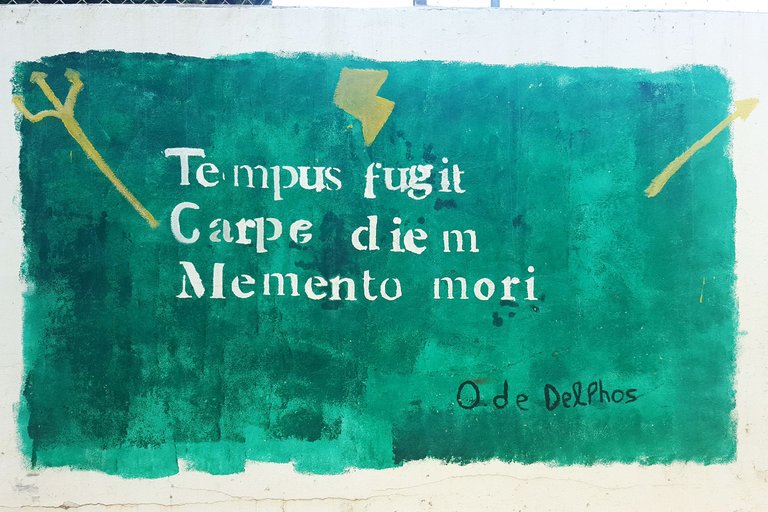 Tempus fugit
Carpe diem
Memento mori
O de Delphos